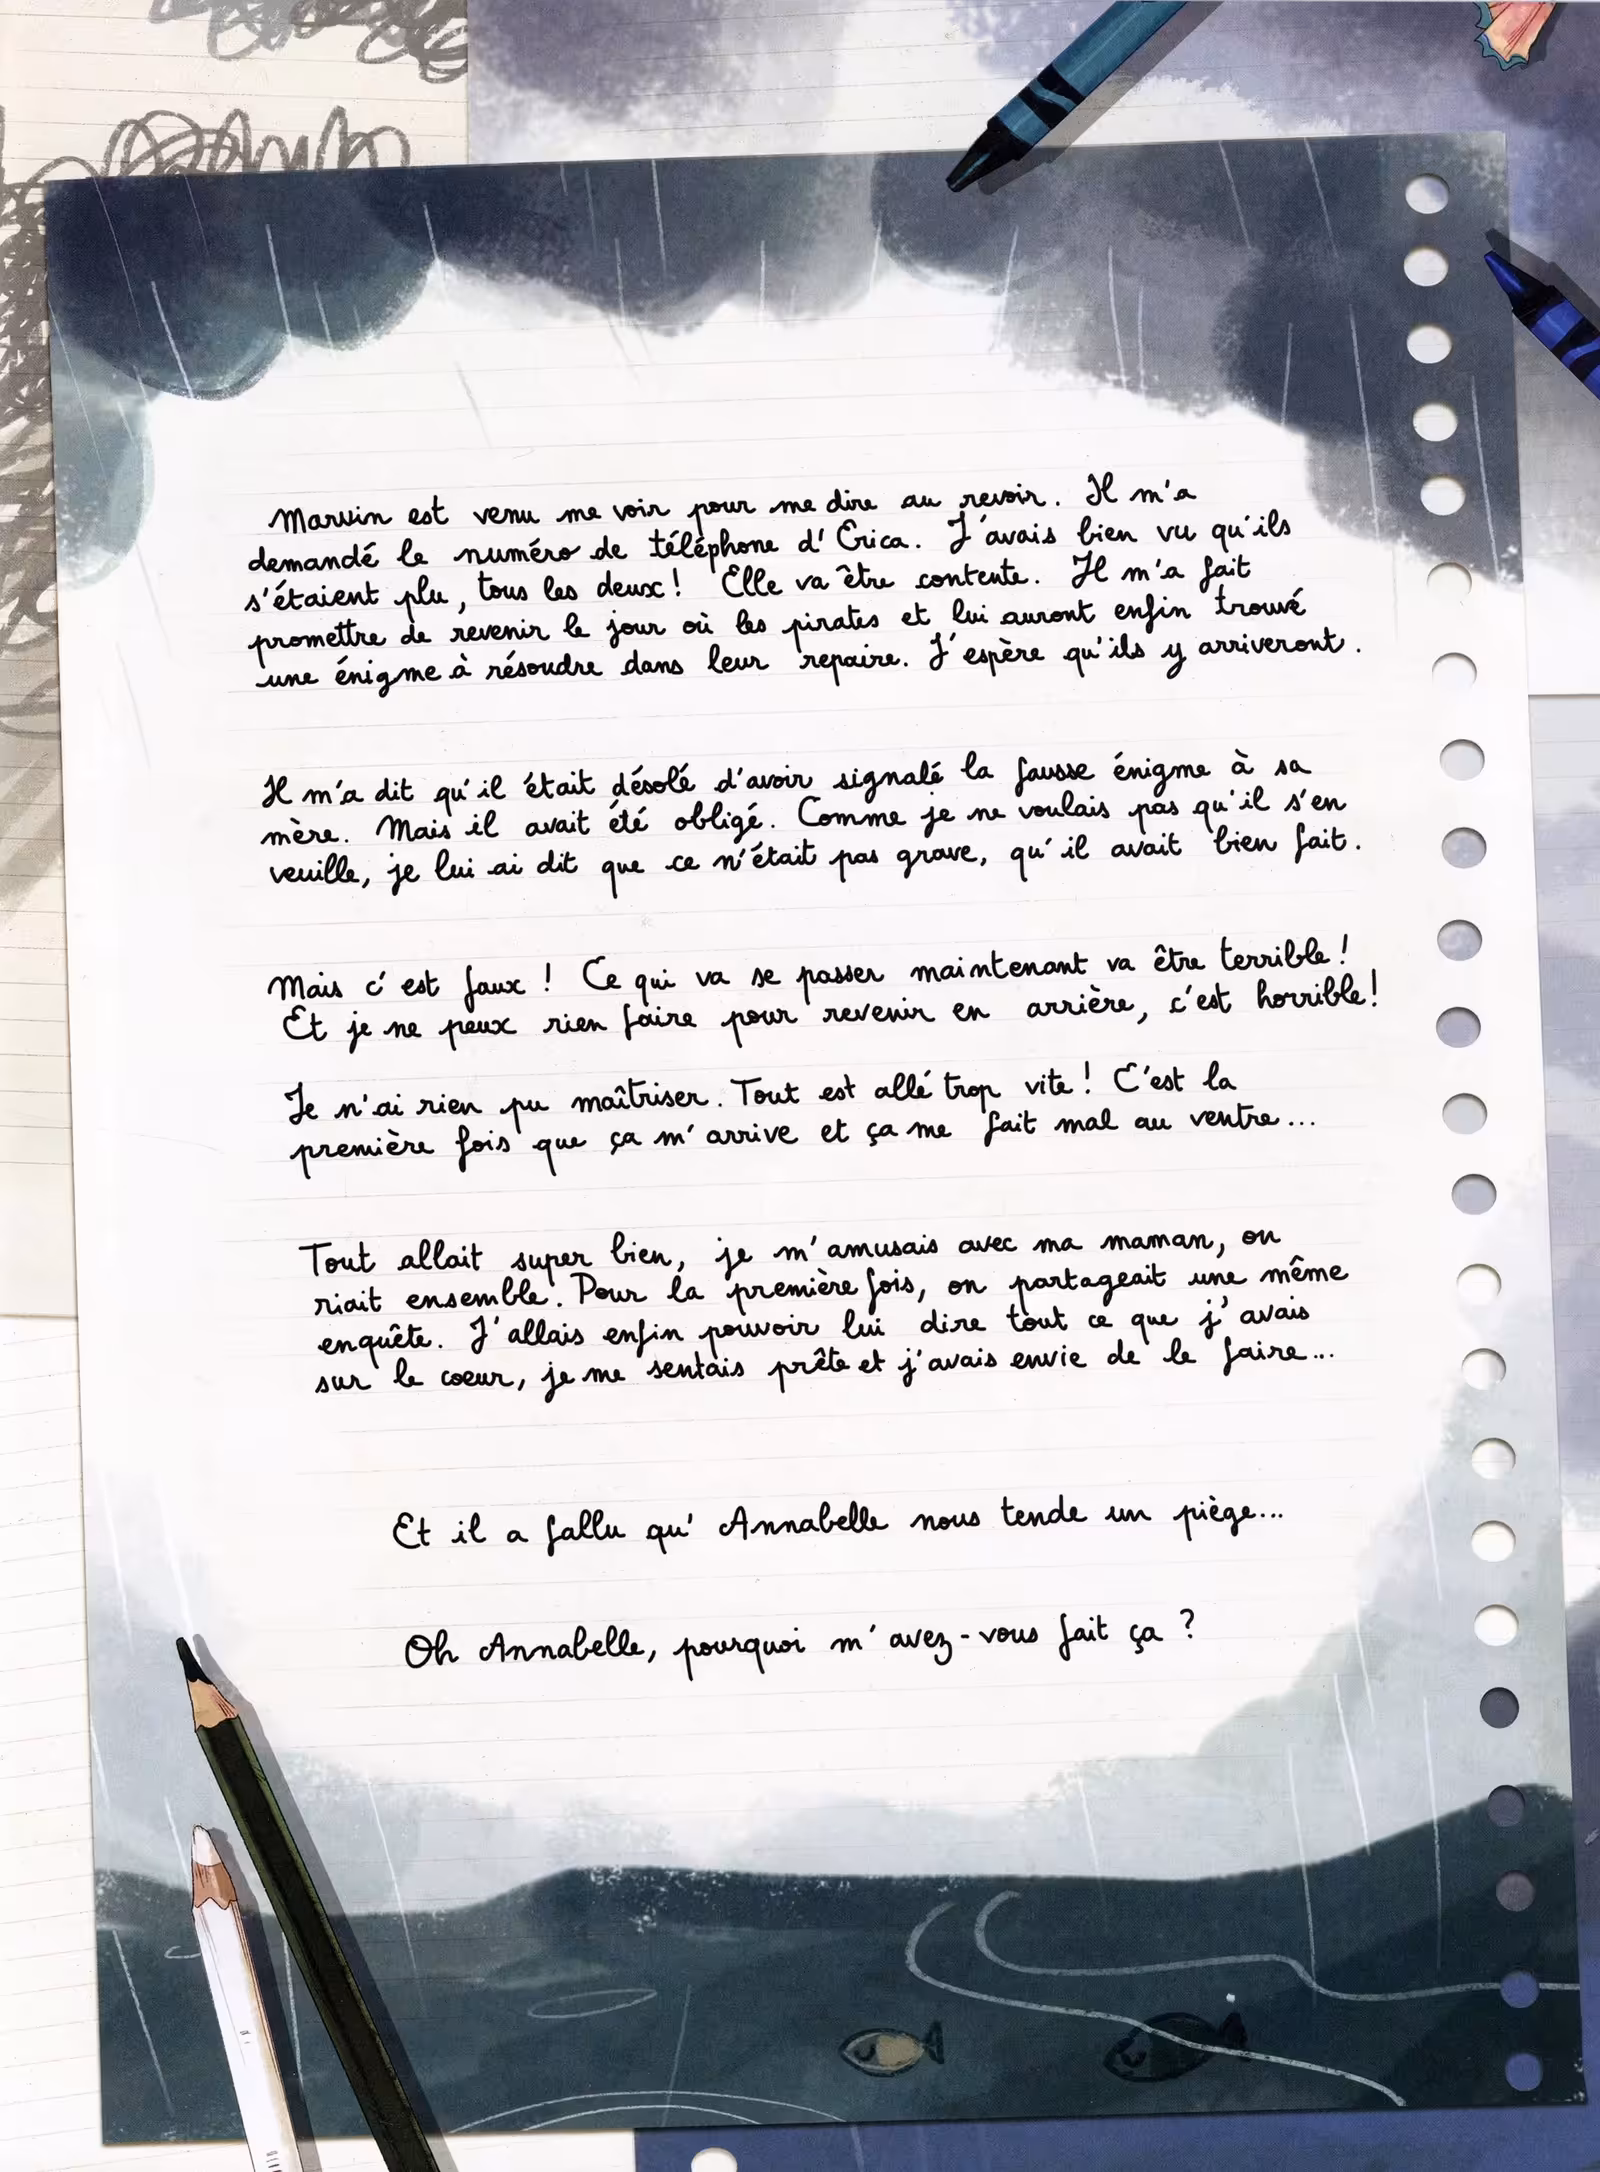 Marvin est venu me voir pour me dire au revoir. Il m'a
demandé le numéro de téléphone d'Erica. J'avais bien vu qu'ils
s'étaient plu, tous les deux ! Elle va être contente. Il m'a fait
promettre de revenir le jour où les pirates et lui auront enfin trouvé
une énigme à résoudre dans leur repaire. J'espère qu'ils y arriveront.
Il m'a dit qu'il était désolé d'avoir signalé la fausse énigme à sa
mère. Mais il avait été obligé. Comme je ne voulais pas qu'il s'en
veuille, je lui ai dit que ce n'était pas grave, qu'il avait bien fait.
Mais c'est faux ! Ce qui va se passer maintenant va être terrible !
Et je ne peux rien faire pour revenir en arrière, c'est horrible !
Je n'ai rien pu maîtriser. Tout est allé trop vite ! C'est la
première fois que ça m'arrive et ça me fait mal au ventre...
Tout allait super bien, je m'amusais avec ma maman, on
riait ensemble. Pour la première fois, on partageait une même
enquête. J'allais enfin pouvoir lui dire tout ce que j'avais
sur le cœur, je me sentais prête et j'avais envie de le faire...
Et il a fallu qu'Annabelle nous tende un piège...
Oh Annabelle, pourquoi m'avez-vous fait ça ?